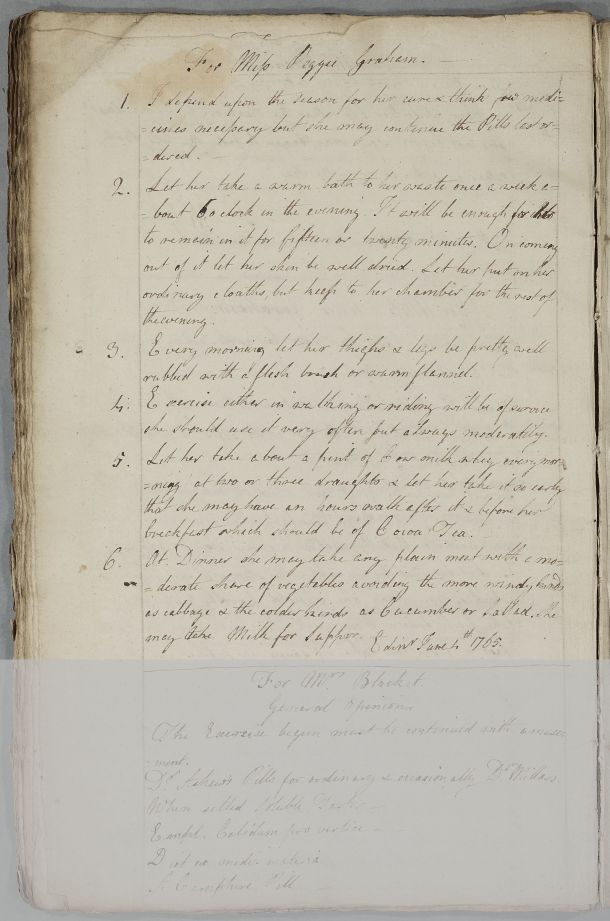 For Miss Peggie Graham.
1. I depend upon the season for her cure & think few medi-
=cines necessary but she may continue the Pills last or=
=dered.
2. Let her take a warm bath to her waste once a week a=
=bout 6 o clock in the evening. It will be enough for her
to remain in it for fifteen or twenty minutes. On coming
out of it let her skin be well dried. Let her put on her
ordinary cloaths, but keep to her chamber for the rest of
the evening.
3. Every morning let her thighs & legs be pretty well
rubbed with a flesh brush or warm flannel.
4. Exercise either in walking or riding will be of service
she should use it very often but always moderately.
5. Let her take about a pint of Cow milk whey every mor=
=ning at two or three draughts & let her take it so early
that she may have an hours walk after it & before her
breckfast which should be of Cocoa Tea.
6. At Dinner she may take any plain meat with a mo=
=derate share of vegetables avoiding the more windy kinds
as cabbage & the colder kinds as Cucumber or Sallad. She
may take Milk for Supper. Edinr June 4th 1765.
For Mrs Blacket
General Opinions
The Exercise begun must be continued with amuse=
=ment.
Dr Askew's Pills for ordinary & occasionally Dr
When settled Soluble Tartar
Empl. Calidum pro vertice
Diet ex medi materia
A Camphire Pill